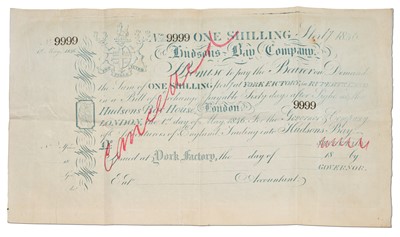 9999 ONE SHILLING
9999
Hudsons Bay Company.
Promise to pay the Bearer on Demand
the Sum of ONE SHILLING YORK FACTORY, in RUPERTS LAND
in a Bill of Exchange payable Sixty days after Sight at the
Hudsons Bay House London 9999
LONDON, the 1st day of May 1846 For the Governor & Company
of Adventurers of England Trading into Hudsons Bay
Issued at York Factory, the day of 18 by
GOVERNOR.
Ent. Accountant.
Cancelled